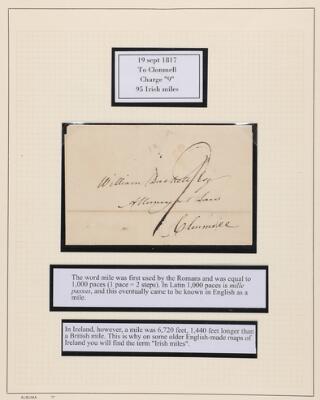 19 sept 1817
To Clonmell
Charge "9"
95 Irish miles
9
William
Attorney at Law
Clonmell
The word mile was first used by the Romans and was equal to
1,000 paces (1 pace = 2 steps). In Latin 1,000 paces is mille
passes, and this eventually came to be known in English as a
mile.
In Ireland, however, a mile was 6,720 feet, 1,440 feet longer than
a British mile. This is why on some older English-made maps of
Ireland you will find the term "Irish miles".